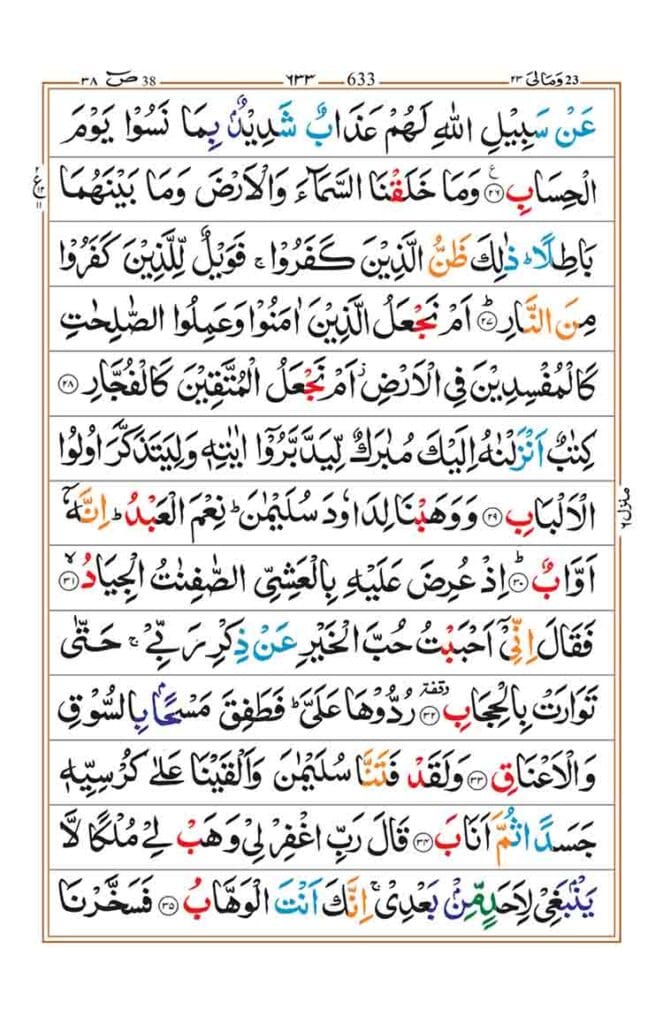 ٣٨ صٓ 38 ٦٣٣ 633 ٢٣ وَمَالِیَ 23
عَنْ سَبِیْلِ اللّٰهِ لَهُمْ عَذَابٌ شَدِیْدٌۢ بِمَا نَسُوْا یَوْمَ
الْحِسَابِ ﴿۲۶﴾ وَمَا خَلَقْنَا السَّمَآءَ وَالْاَرْضَ وَمَا بَیْنَهُمَا
بَاطِلًا ؕ ذٰلِكَ ظَنُّ الَّذِیْنَ كَفَرُوْا ۚ فَوَیْلٌ لِّلَّذِیْنَ كَفَرُوْا
مِنَ النَّارِ ﴿۲۷﴾ؕ اَمْ نَجْعَلُ الَّذِیْنَ اٰمَنُوْا وَعَمِلُوا الصّٰلِحٰتِ
كَالْمُفْسِدِیْنَ فِی الْاَرْضِ ؗ اَمْ نَجْعَلُ الْمُتَّقِیْنَ كَالْفُجَّارِ ﴿۲۸﴾
كِتٰبٌ اَنْزَلْنٰهُ اِلَیْكَ مُبٰرَكٌ لِّیَدَّبَّرُوْۤا اٰیٰتِهٖ وَلِیَتَذَكَّرَ اُولُوا
الْاَلْبَابِ ﴿۲۹﴾ وَوَهَبْنَا لِدَاوٗدَ سُلَیْمٰنَ ؕ نِعْمَ الْعَبْدُ ؕ اِنَّهٗۤ
اَوَّابٌ ﴿۳۰﴾ؕ اِذْ عُرِضَ عَلَیْهِ بِالْعَشِیِّ الصّٰفِنٰتُ الْجِیَادُ ﴿۳۱﴾ۙ
فَقَالَ اِنِّیْۤ اَحْبَبْتُ حُبَّ الْخَیْرِ عَنْ ذِكْرِ رَبِّیْ ۚ حَتّٰی
تَوَارَتْ بِالْحِجَابِ ﴿۳۲﴾ وقفة رُدُّوْهَا عَلَیَّ ؕ فَطَفِقَ مَسْحًۢا بِالسُّوْقِ
وَالْاَعْنَاقِ ﴿۳۳﴾ وَلَقَدْ فَتَنَّا سُلَیْمٰنَ وَاَلْقَیْنَا عَلٰی كُرْسِیِّهٖ
جَسَدًا ثُمَّ اَنَابَ ﴿۳۴﴾ قَالَ رَبِّ اغْفِرْ لِیْ وَهَبْ لِیْ مُلْكًا لَّا
یَنْۢبَغِیْ لِاَحَدٍ مِّنْۢ بَعْدِیْ ۚ اِنَّكَ اَنْتَ الْوَهَّابُ ﴿۳۵﴾ فَسَخَّرْنَا
منزل ٦